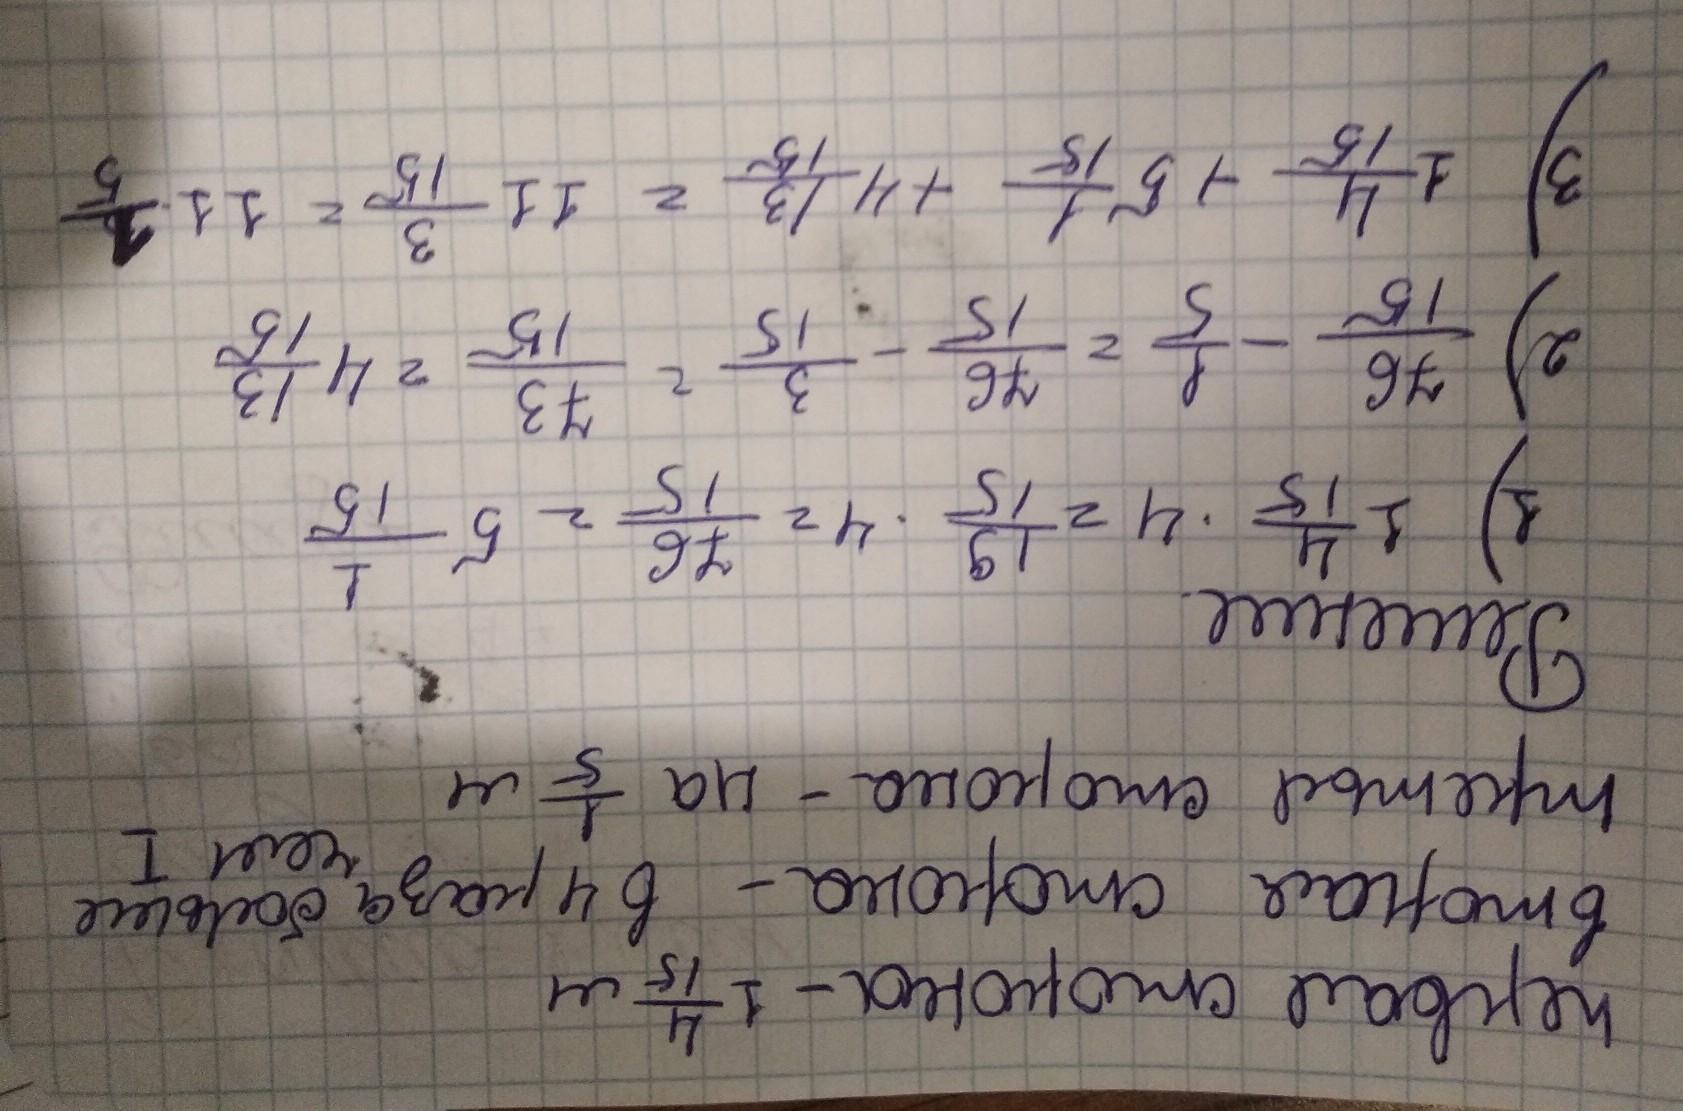 первая сторона - 1 4/15 м
вторая сторона - в 4 раза больше
чем I
третья сторона - на 1/5 м
Решение
1) 1 4/15 · 4 = 19/15 · 4 = 76/15 = 5 1/15
2) 76/15 - 1/5 = 76/15 - 3/15 = 73/15 = 4 13/15
3) 1 4/15 + 5 1/15 + 4 13/15 = 11 3/15 = 11 1/5